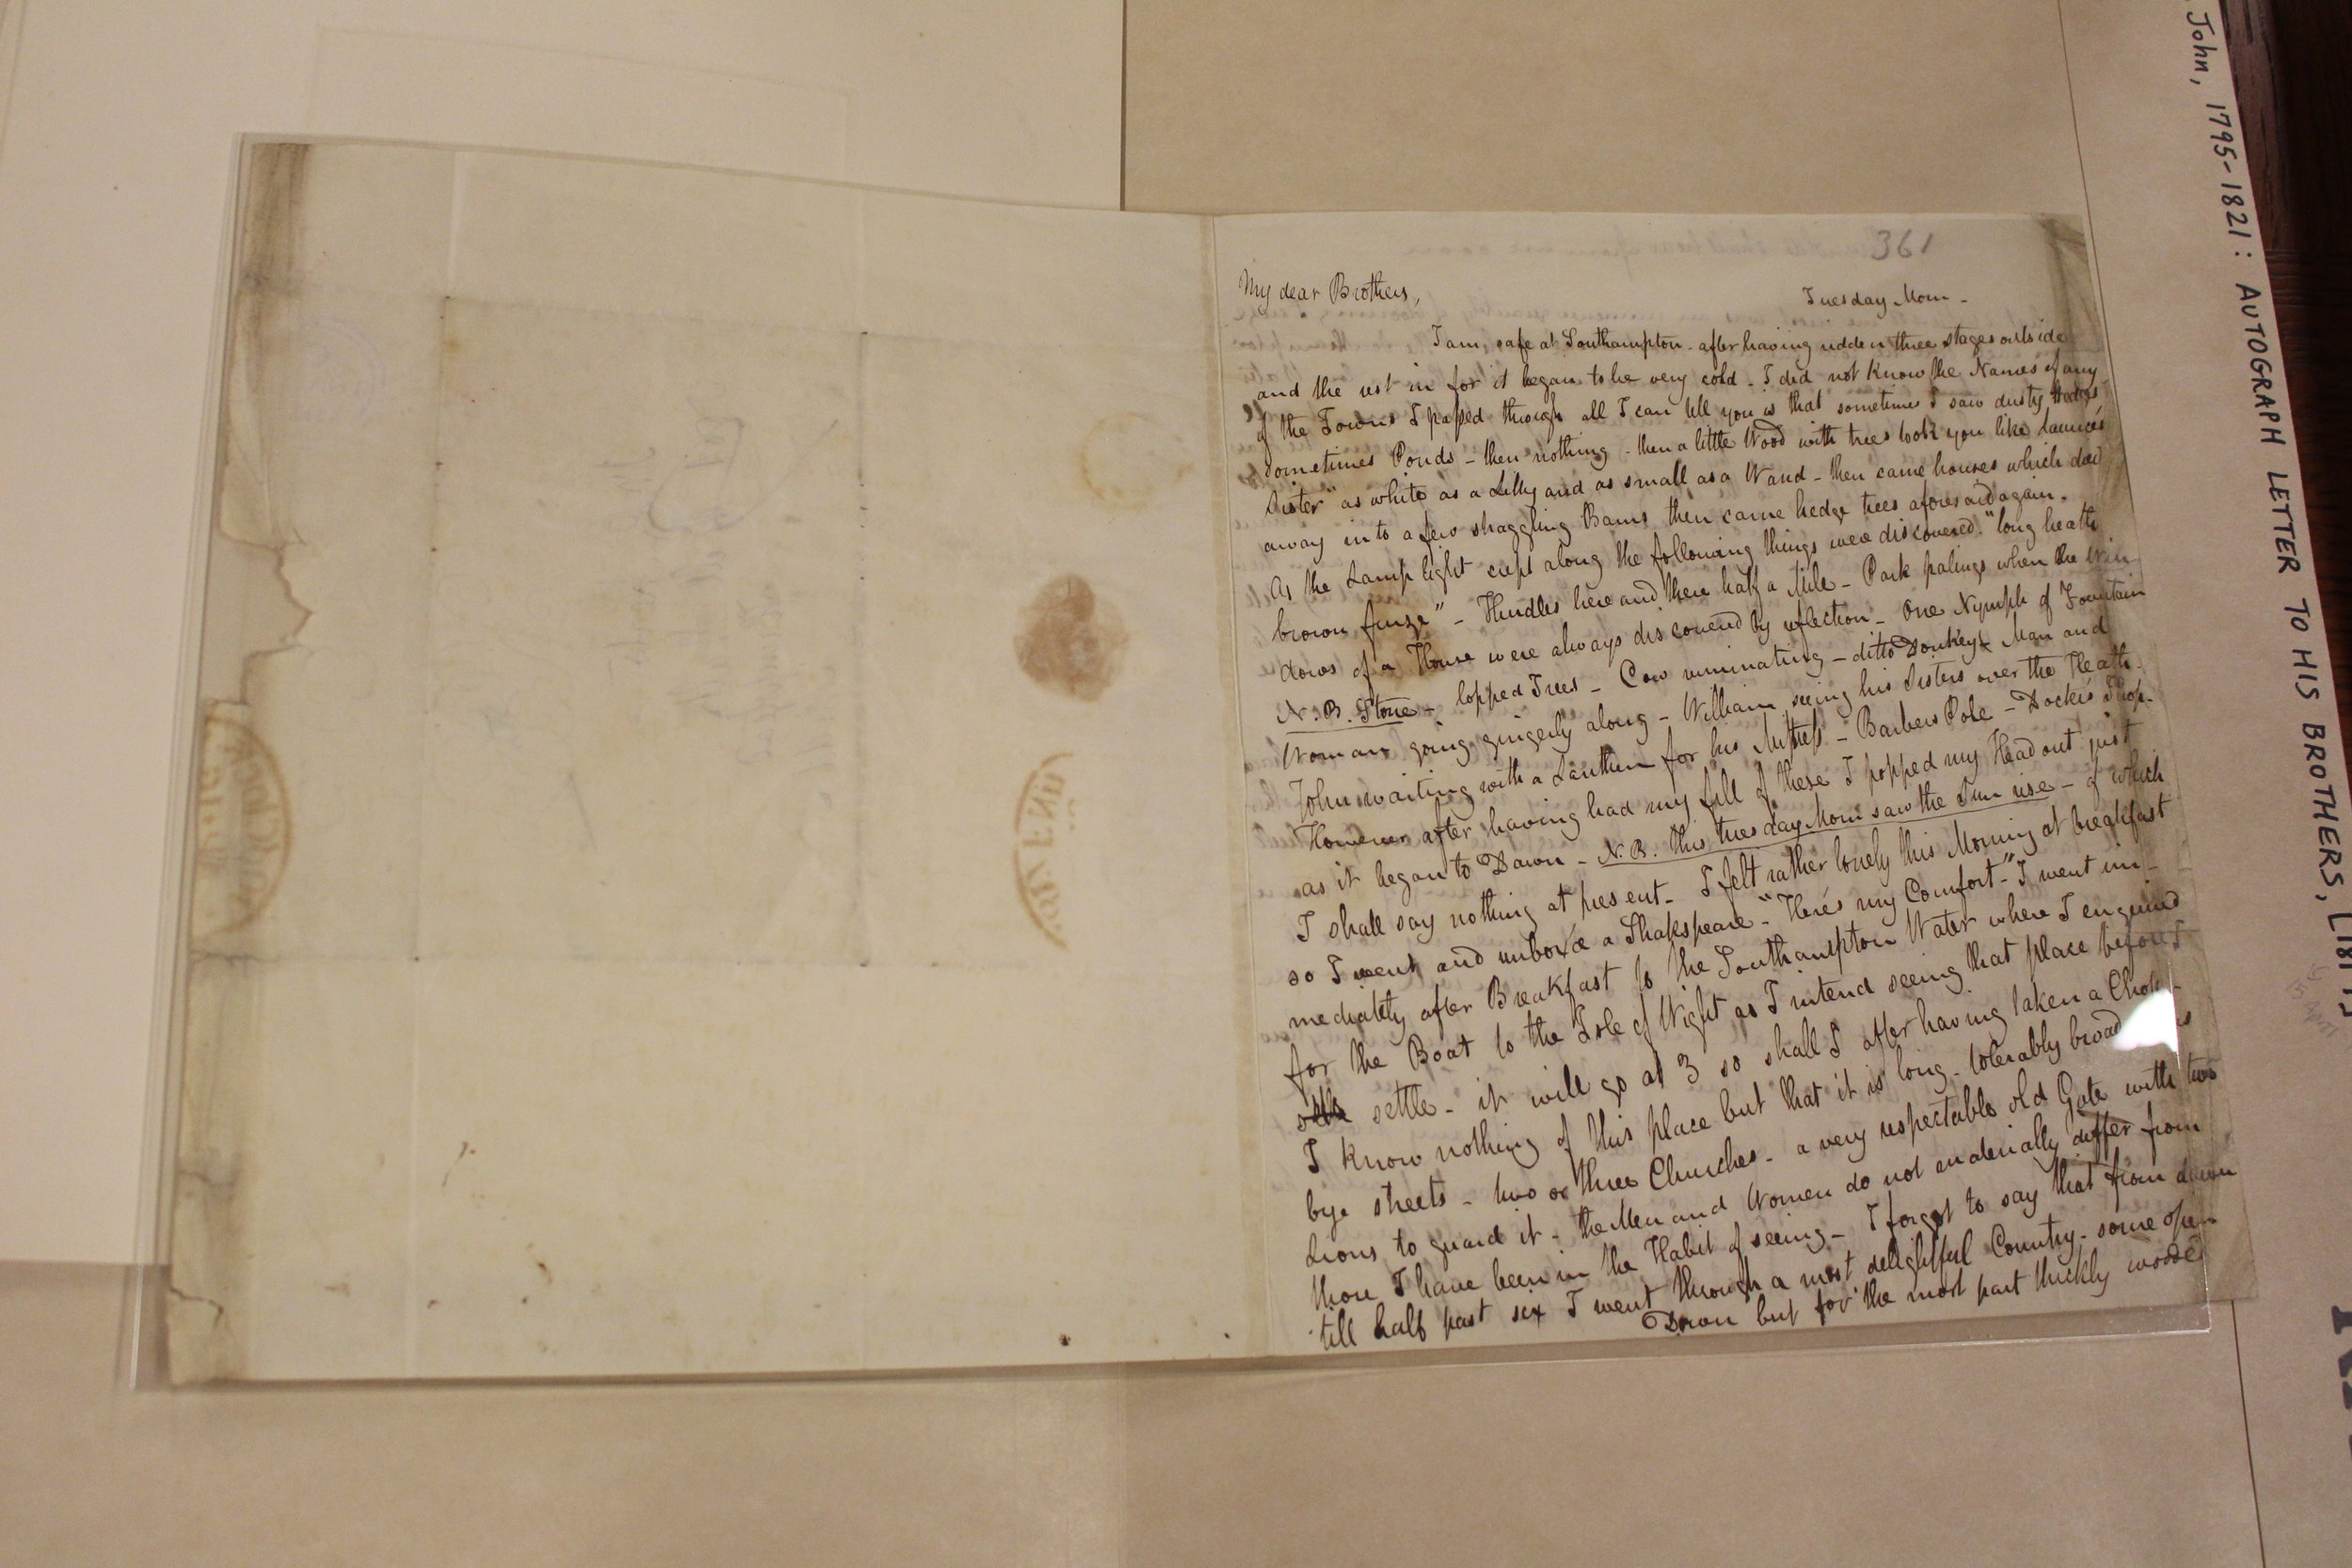 361
My dear Brothers,
Tuesday Morn -
I am safe at Southampton - after having ridden three stages outside
and the rest in for it began to be very cold - I did not know the Names of any
of the Towns I passed through all I can tell you is that sometimes I saw dusty Hedges
sometimes Ponds - then nothing - then a little Wood with trees look you like Launce's
Sister "as white as a Lilly and as small as a Wand - then came houses which died
away into a few straggling Barns then came hedge trees aforesaid again.
As the Lamp light crept along the following things were discovered. "long heath
brown furze" - Hurdles here and there half a Mile - Park palings when the Win-
dows of a House were always discovered by reflection - One Nymph of Fountain
N.B. Stone - lopped Trees - Cow ruminating - ditto Donkey - Man and
Woman going gingerly along - William seeing his Sisters over the Heath -
John waiting with a Lanthen for his Mistress - Barbers Pole - Docter's Shop -
However after having had my fill of these I popped my Head out just
as it began to Dawn - N.B. this tuesday Morn saw the Sun rise - of which
I shall say nothing at present - I felt rather lonely this Morning at breakfast
so I went and unbox'd a Shakspeare - "Here's my Comfort" - I went im-
mediately after Breakfast to the Southampton Water where I enquired
for the Boat to the Isle of Wight as I intend seeing that place before I
settle - it will go at 3 so shall I after having taken a Chop -
I know nothing of this place but that it is long - tolerably broad
bye streets - two or three Churches - a very respectable old Gate with two
Lions to guard it - the Men and Women do not materially differ from
those I have been in the Habit of seeing - I forgot to say that from dawn
till half past six I went through a most delightful Country - some open
Down but for the most part thickly wooded
John, 1795-1821: AUTOGRAPH LETTER TO HIS BROTHERS,